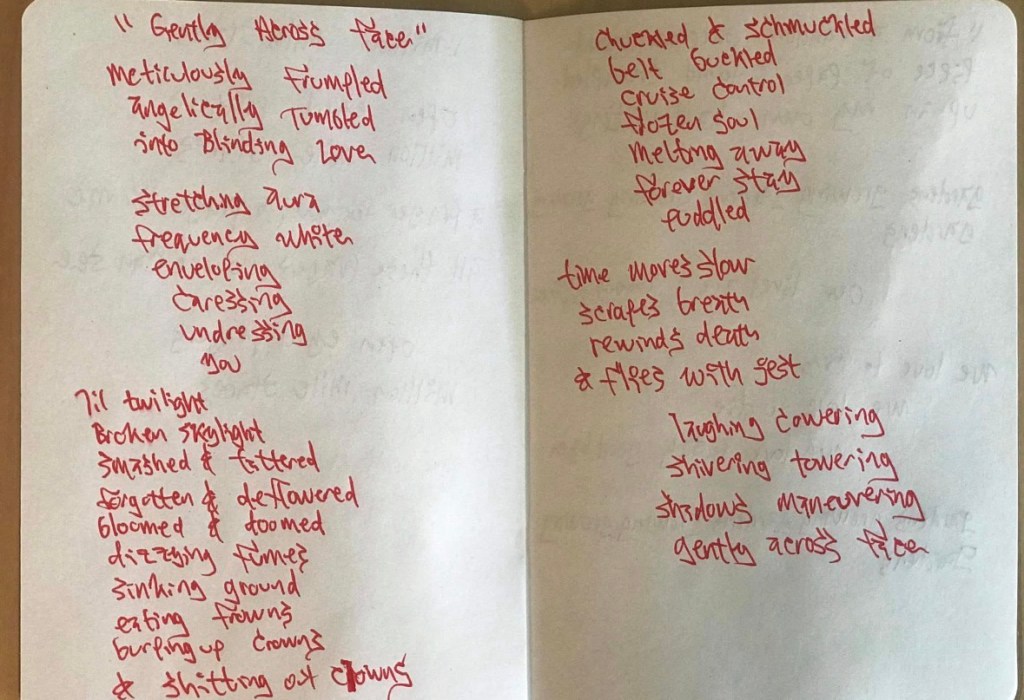 "Gently Across face"
Meticulously frumpled
angelically Tumbled
into Blinding Love
stretching aura
frequency white
enveloping
caressing
undressing
you
'Til twilight
Broken skylight
smashed & tattered
forgotten & deflowered
bloomed & doomed
dizzying fumes
sinking ground
eating frowns
burping up crowns
& shitting out clowns
chuckled & schmuckled
belt buckled
cruise control
frozen soul
melting away
forever stay
fuddled
time moves slow
scrapes breath
rewinds death
& flies with jest
laughing cowering
shivering towering
shadows maneuvering
gently across face